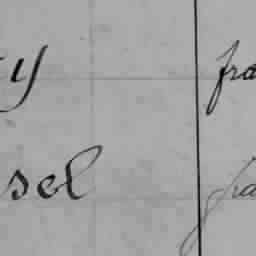 y fra
sel fra